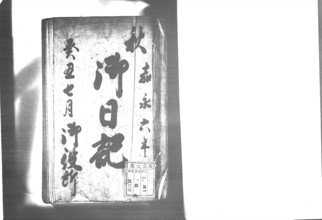 秋 嘉永六年
御日記
癸丑七月 御役所